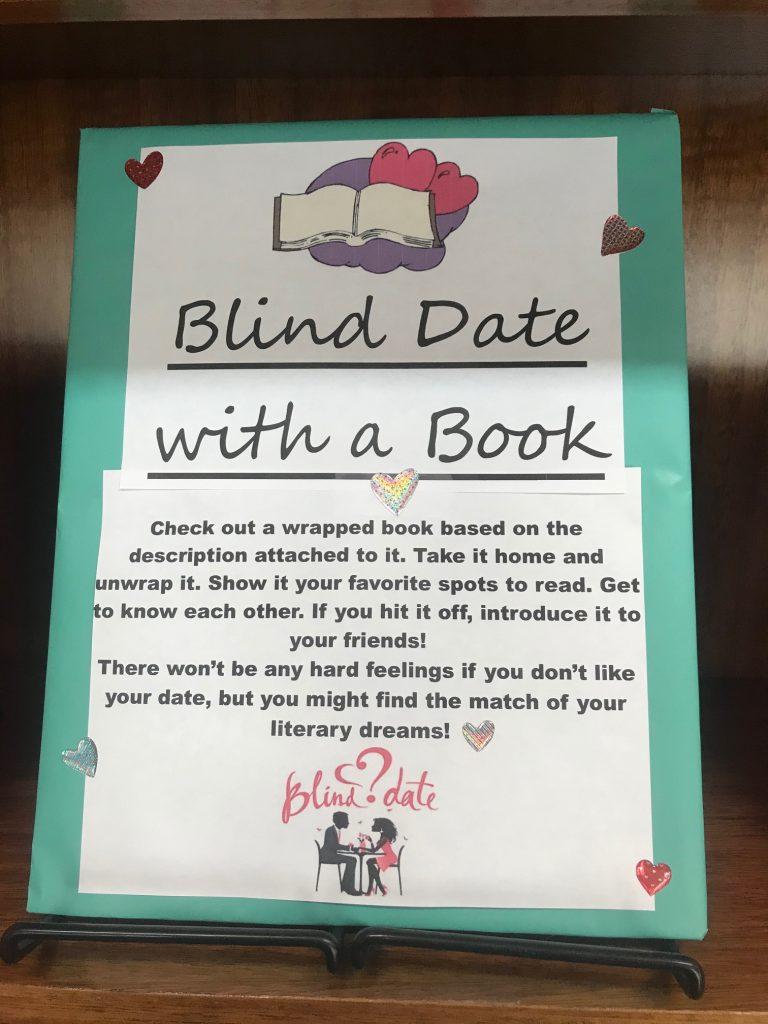 Blind Date
with a Book
Check out a wrapped book based on the
description attached to it. Take it home and
unwrap it. Show it your favorite spots to read. Get
to know each other. If you hit it off, introduce it to
your friends!
There won't be any hard feelings if you don't like
your date, but you might find the match of your
literary dreams!
Blind? date